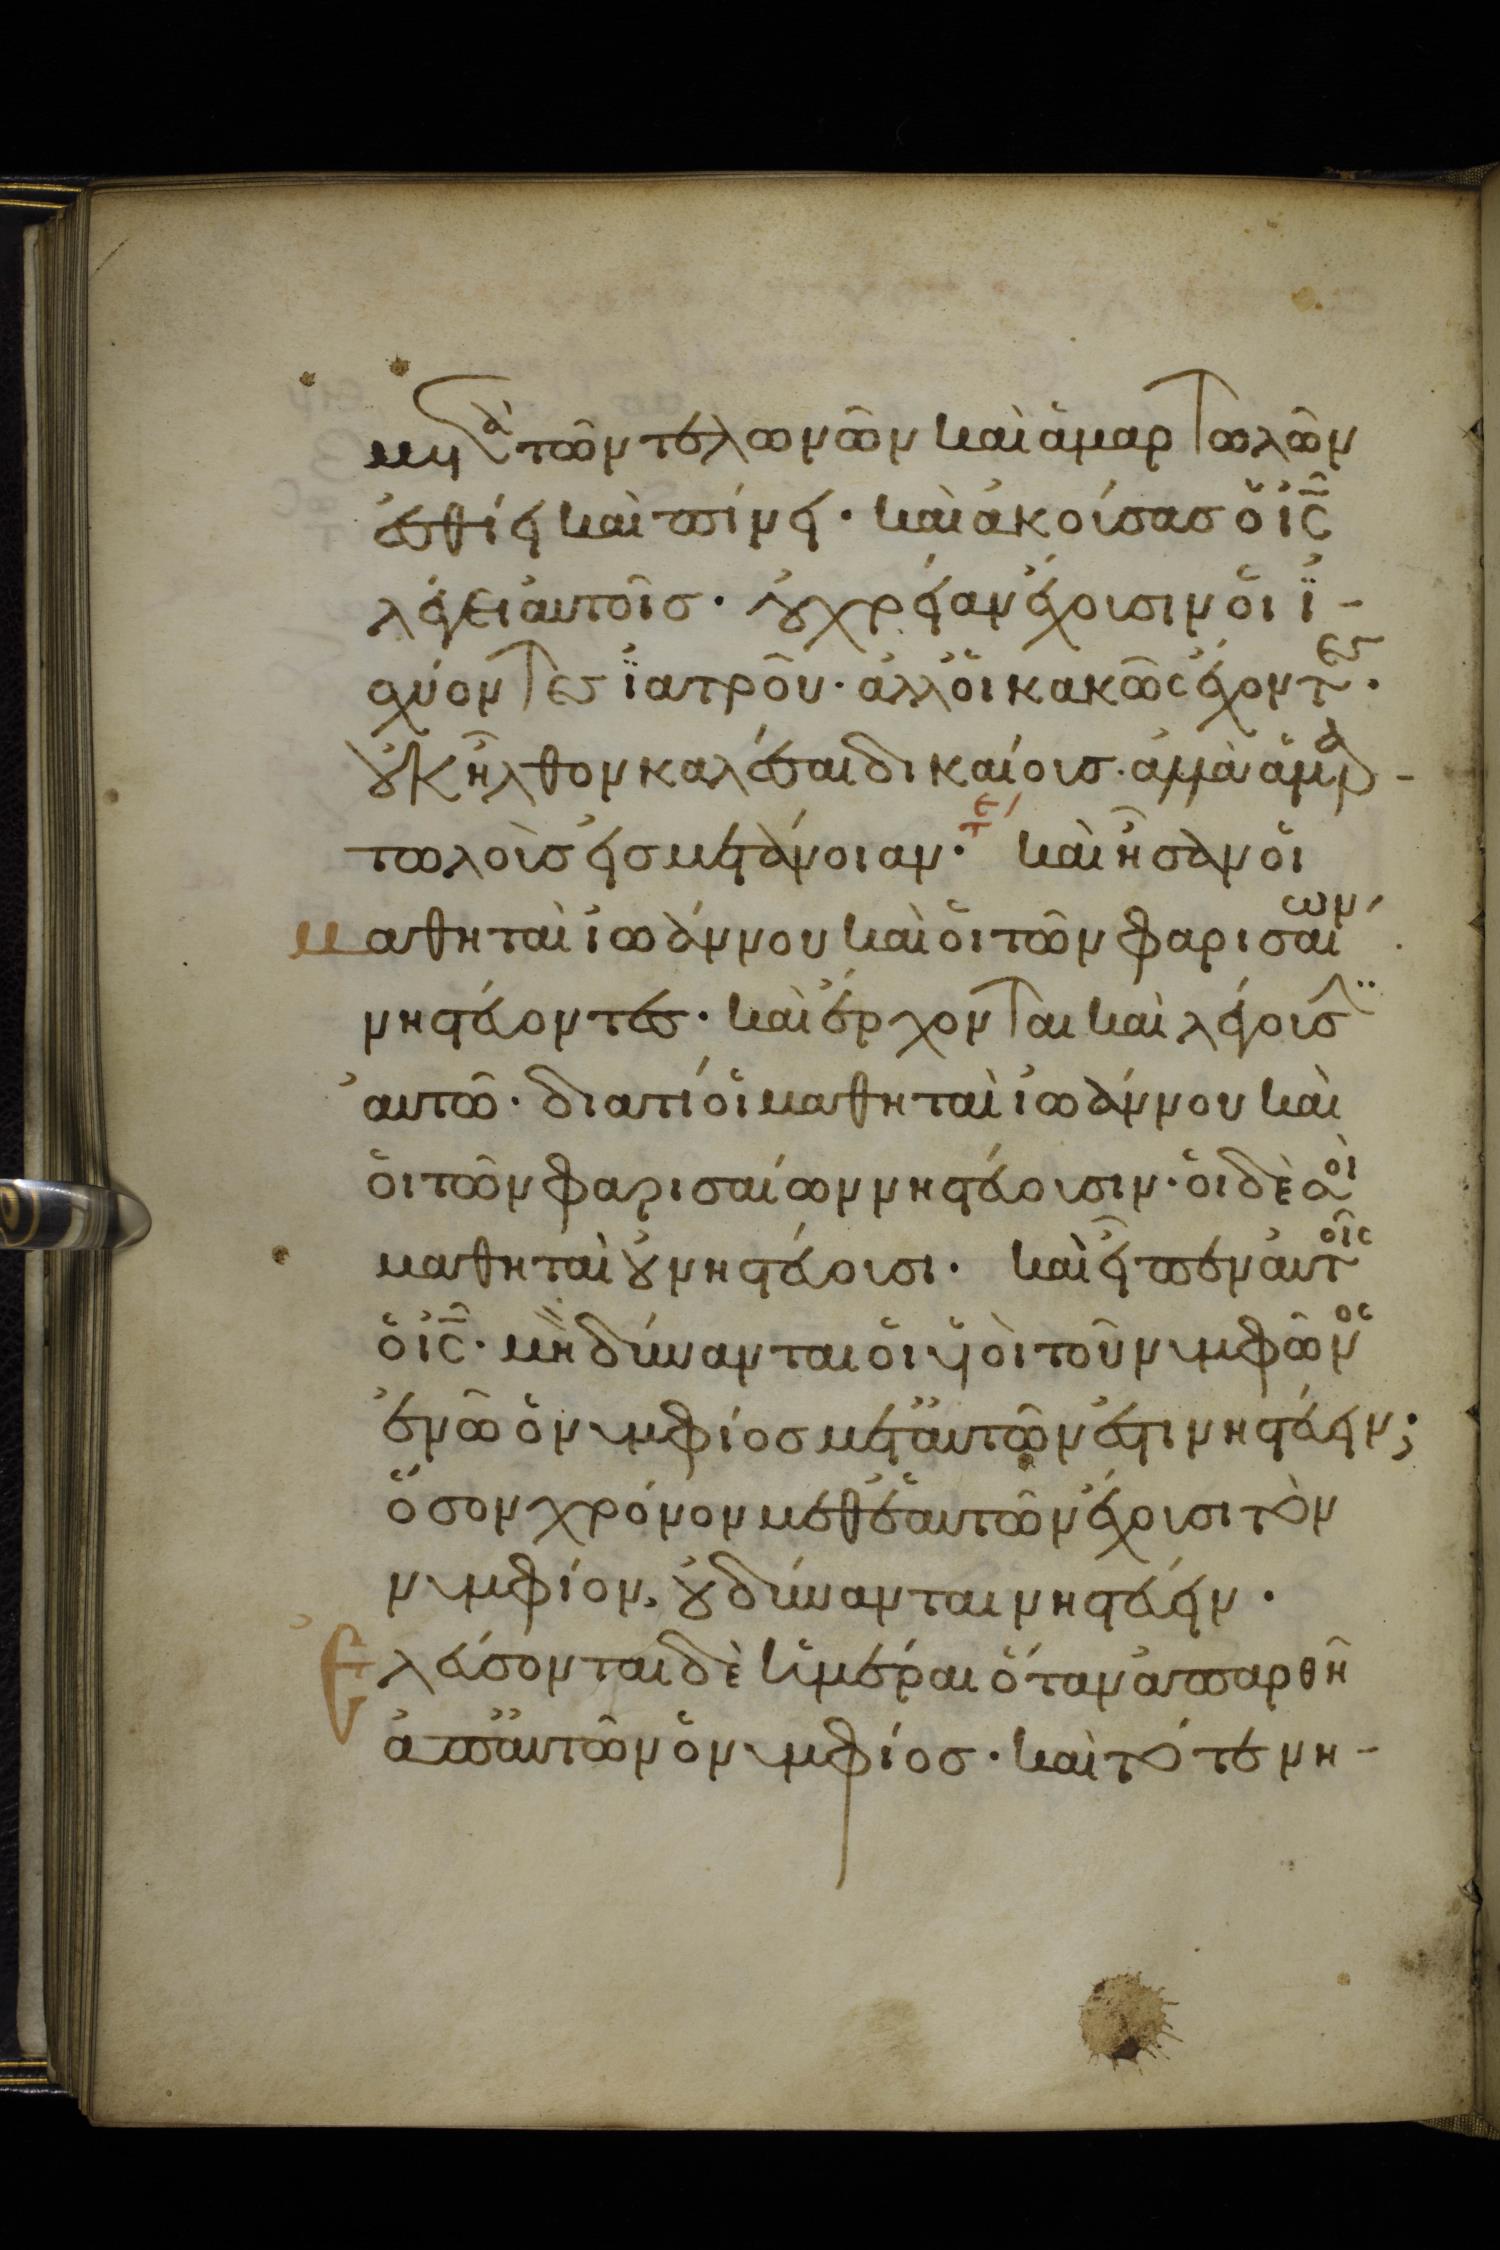 μετὰ τῶν τελωνῶν καὶ ἁμαρτωλῶν
ἐσθίει καὶ πίνει· καὶ ἀκούσας ὁ ἰ̅ς̅
λέγει αὐτοῖς· οὐ χρείαν ἔχουσιν οἱ ἰ-
σχύοντες ἰατροῦ· ἀλλ' οἱ κακῶς ἔχοντες·
οὐκ ἦλθον καλέσαι δικαίους· ἀλλὰ ἁμαρ-
τωλοὺς εἰς μετάνοιαν· τε/ καὶ ἦσαν οἱ
μαθηταὶ ἰωάννου καὶ οἱ τῶν φαρισαίων
νηστεύοντες· καὶ ἔρχονται καὶ λέγουσιν
αὐτῶ· διατί οἱ μαθηταὶ ἰωάννου καὶ
οἱ τῶν φαρισαίων νηστεύουσιν· οἱ δὲ σοὶ
μαθηταὶ οὐ νηστεύουσι· καὶ εἶπεν αὐτοῖς
ὁ ἰ̅ς̅· μὴ δύνανται οἱ υἱοὶ τοῦ νυμφῶνος
ἐν ῶ ὁ νυμφίος μετ' αὐτῶν ἐστι νηστεύειν;
ὅσον χρόνον μεθ' ἑαυτῶν ἔχουσι τὸν
νυμφίον, οὐ δύνανται νηστεύειν·
Ἐλεύσονται δὲ ἡμέραι ὅταν ἀπαρθῆ
ἀπ' αὐτῶν ὁ νυμφίος· καὶ τότε νη-